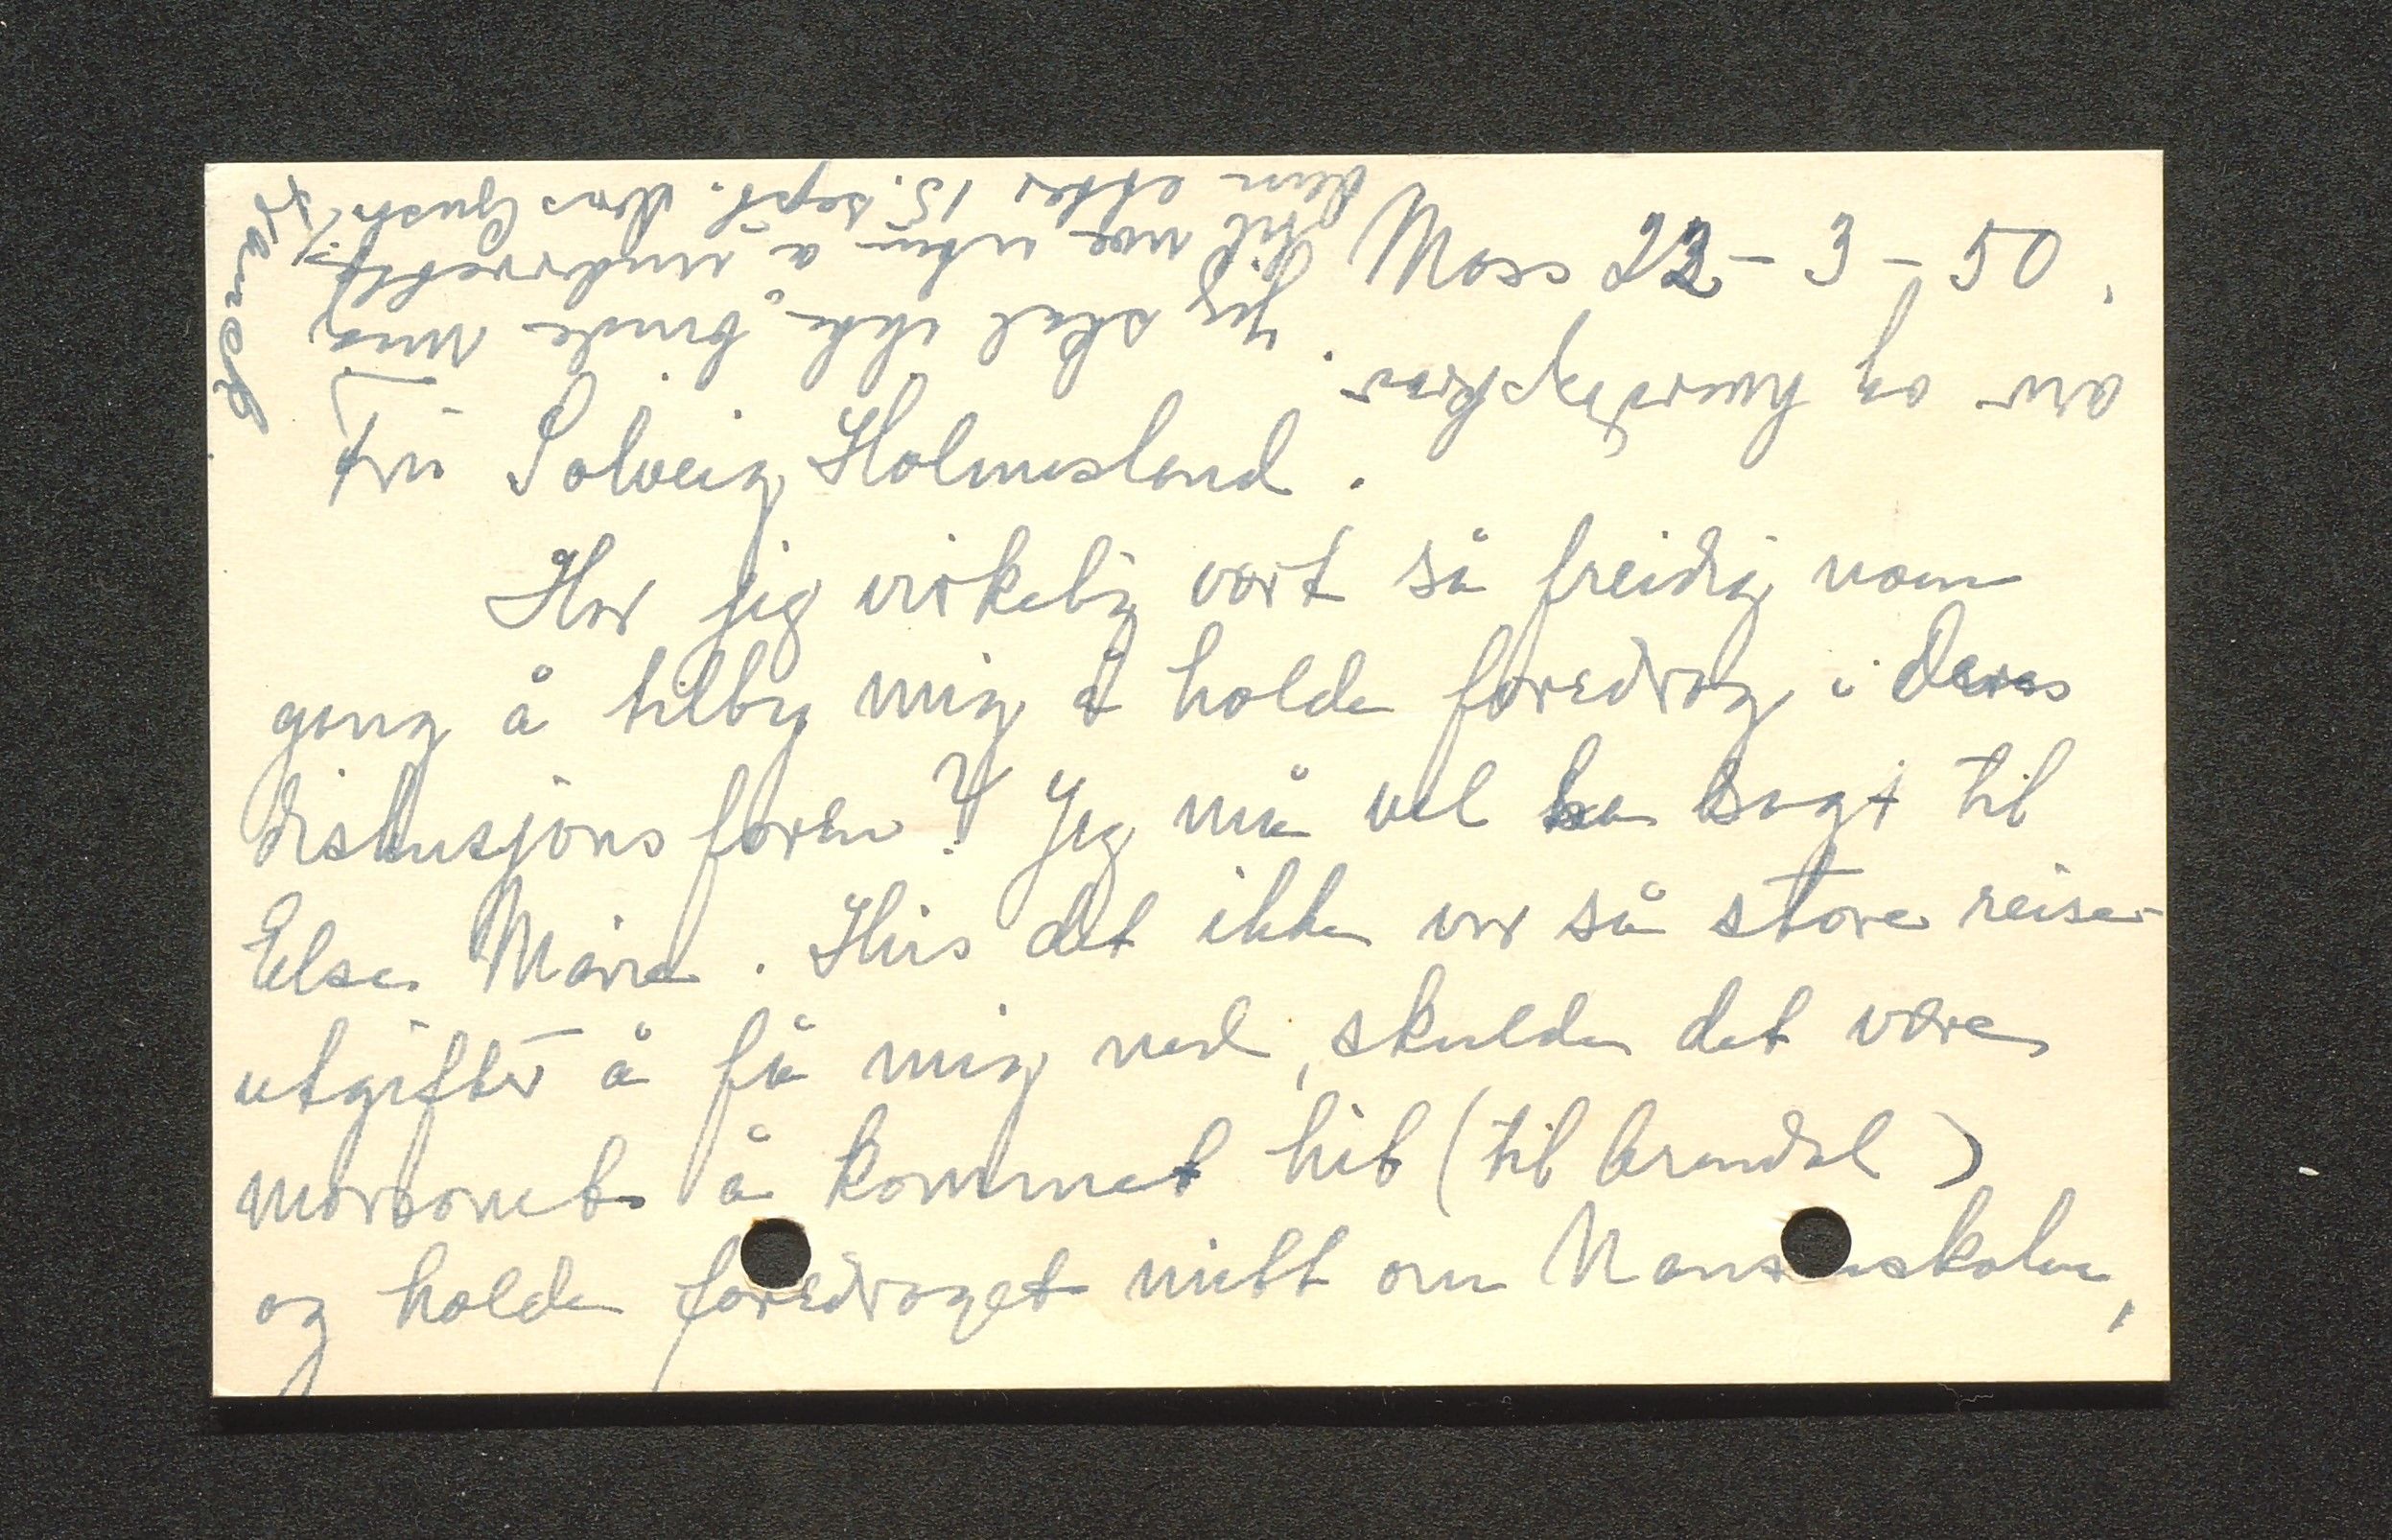 Moss 22-3-50.
Fru Solveig Holmesland.
Har jeg virkelig vært så freidig noen
gang å tilby mig å holde foredrag i Deres
diskusjonsforen? Jeg må vel ha sagt til
Else Marie. Hvis det ikke var så store reise-
utgifter å få mig ned, skulde det være
morsomt å kommet hit (til Arendal)
og holde foredraget mitt om Nansenskolen,
arv og
Jeg skal ikke binde mig
til noe uten å underrette
dem etter 15. sept.